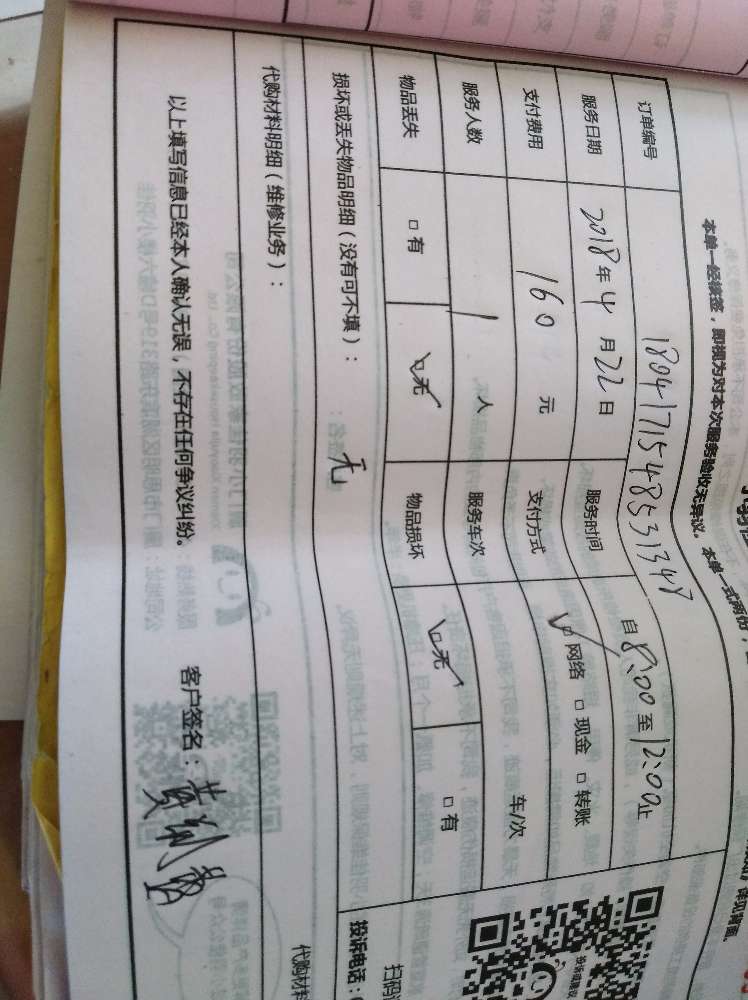 本单一经接签，即视为对本次服务验收无异议。 本单一式两份
详见背面。
订单编号 1804171548531348
服务日期 2018年4月22日 服务时间 自8:00至12:00止
支付费用 160元 支付方式 ☑网络 □现金 □转账
服务人数 1人 服务车次 车/次
物品丢失 □有 ☑无 物品损坏 ☑无 □有
损坏或丢失物品明细（没有可不填）： 无
代购材料明细（维修业务）： 代购材料
以上填写信息已经本人确认无误，不存在任何争议纠纷。 客户签名：
扫码
投诉电话：